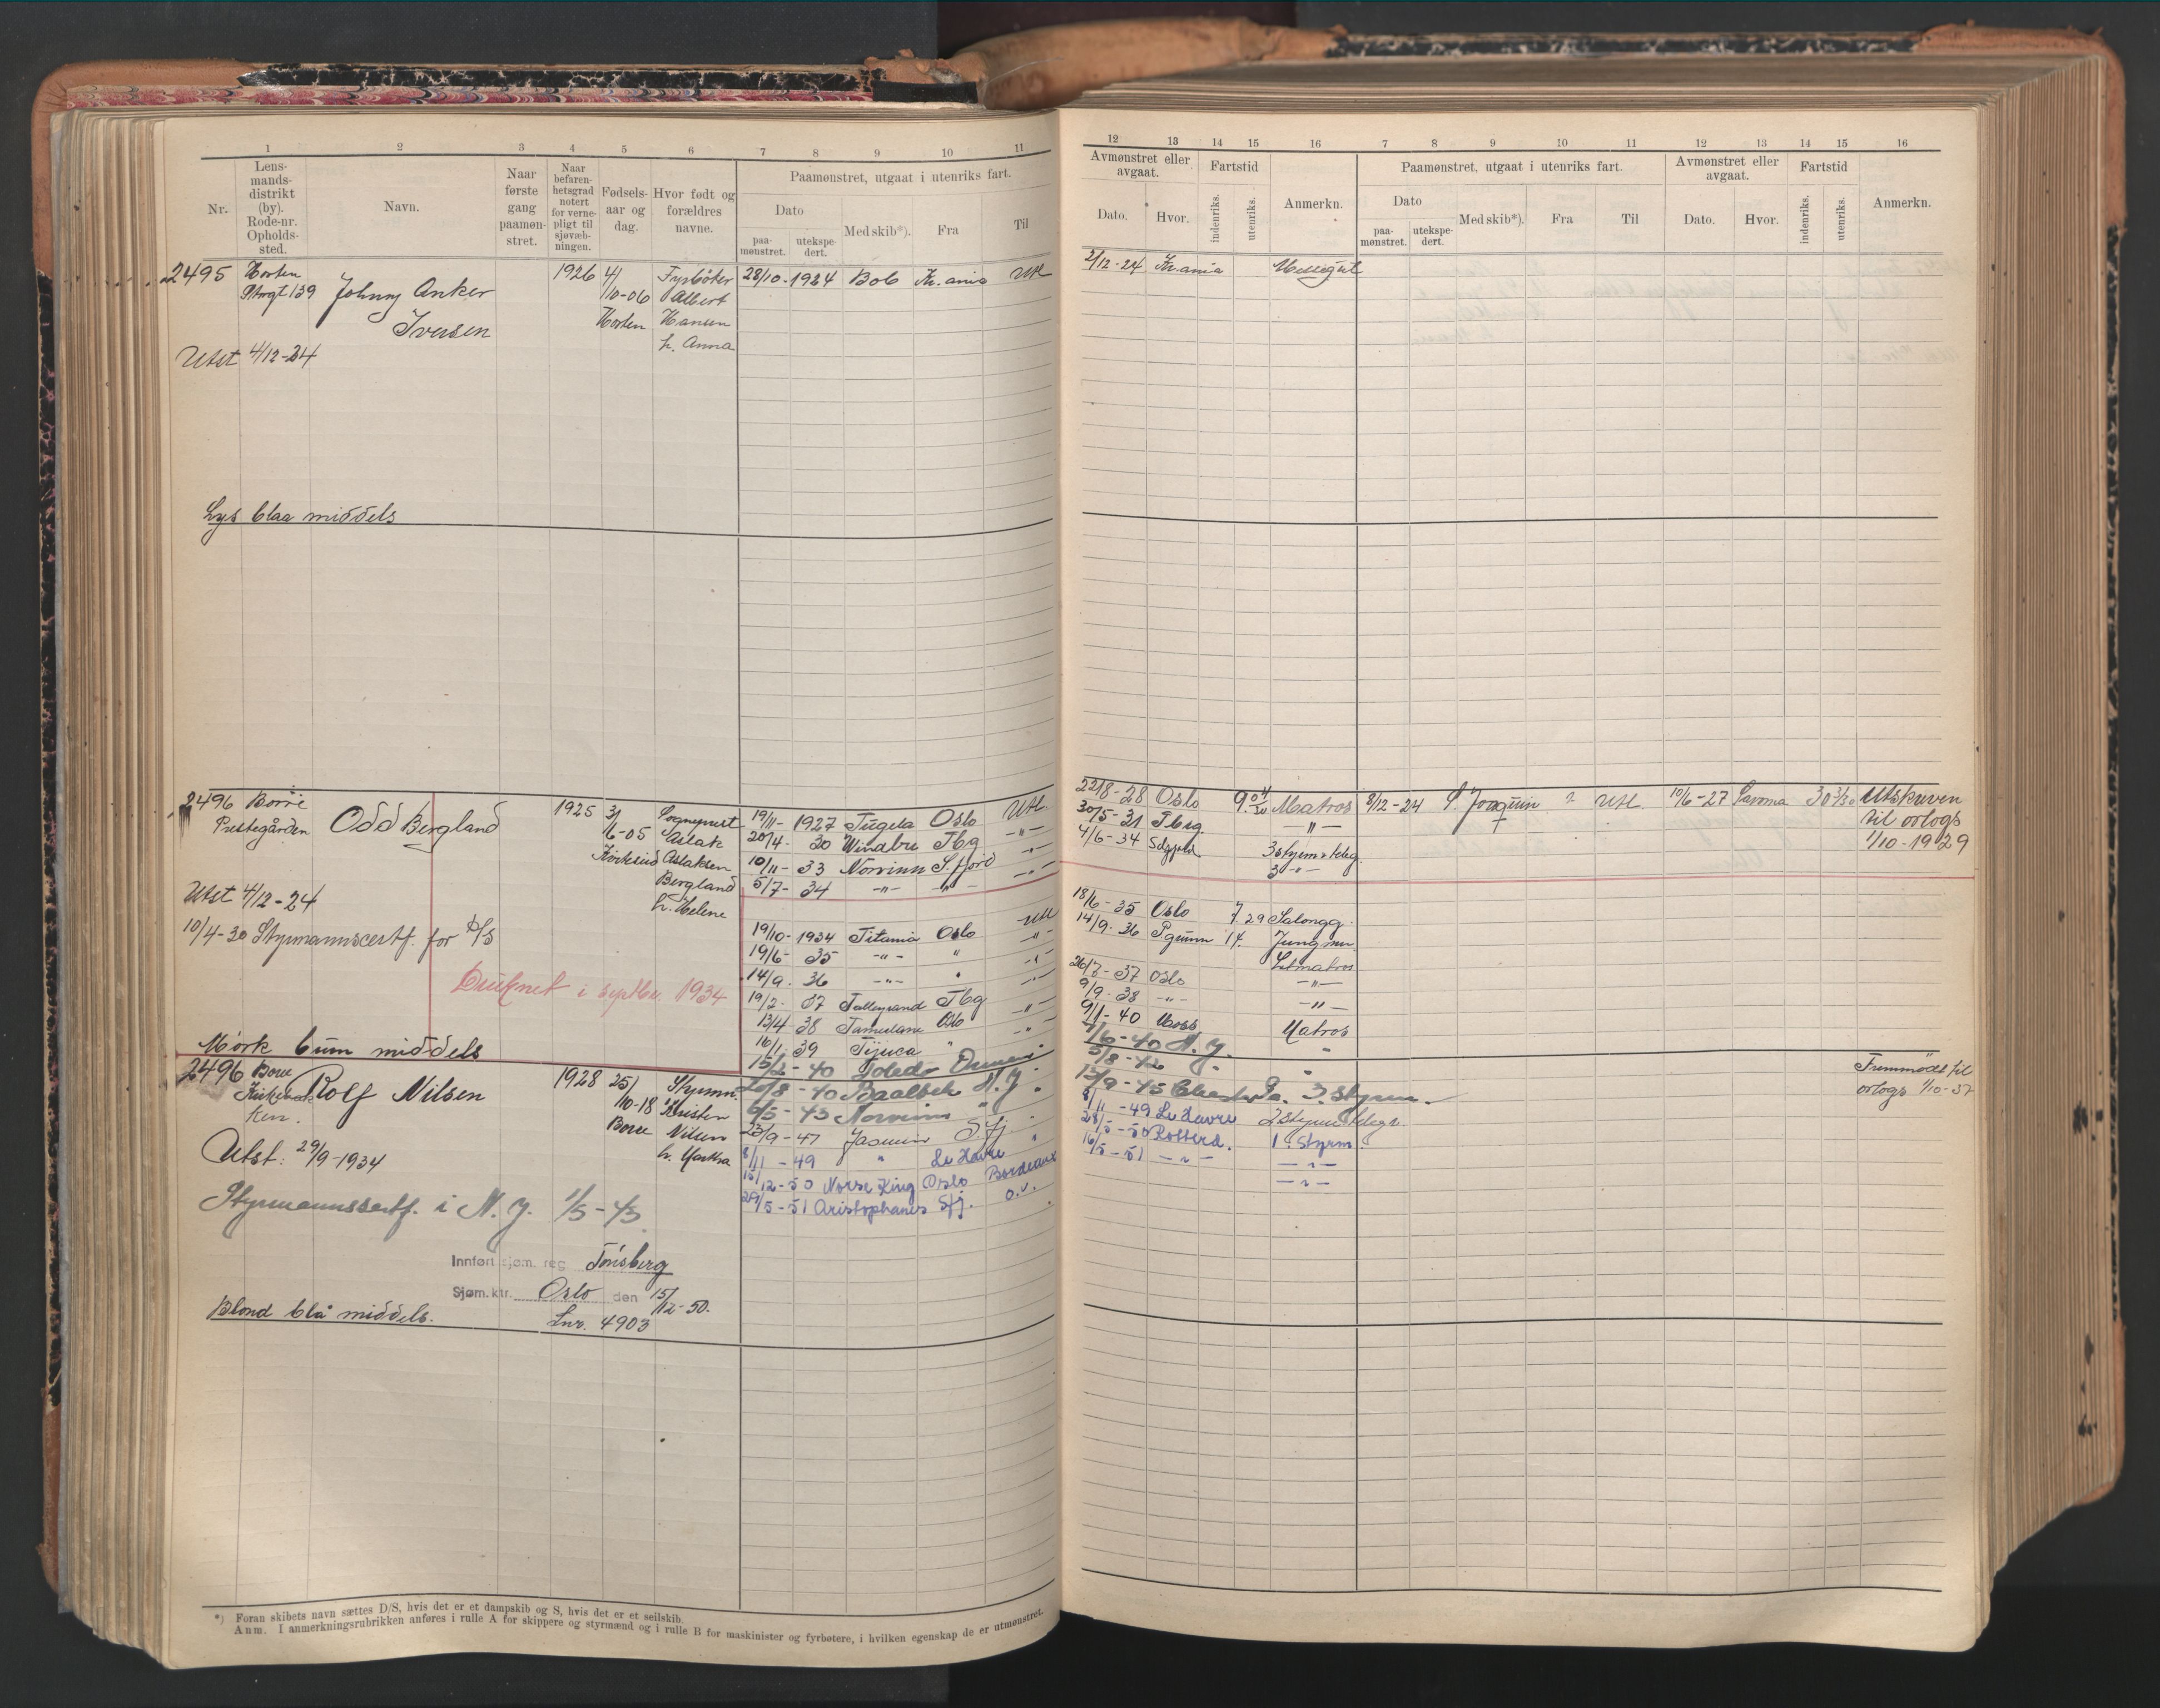 1 2 3 4 5 6 7 8 9 10 11
Nr.
Lens-
mands-
distrikt
(by).
Rode-nr.
Opholds-
sted.
Navn.
Naar
første
gang
paamøn-
stret.
Naar
befaren-
hetsgrad
notert
for verne-
pligt til
sjøvæb-
ningen.
Fødsels-
aar og
dag.
Hvor født og
forældres
navne.
Paamønstret, utgaat i utenriks fart.
Dato
paa-
mønstret.
utekspe-
dert.
Med skib*).
Fra
Til
2495 Horten
139 Johnny Anker
Iversen
Utst 4/12-24
1926 4/
10-06
Horten
Fyrbøter
Albert
Hansen
h. Anna
28/10-1924 Bob Kr.ania Utl
Lys blaa middels
2496 Borre
Prestegården Odd Bergland
1925 3/
6-05
Sogneprest
Aslak
Aslaksen
Bergland
h. Helene
Utst 4/12-24
10/4-30 Styrmannscertf. for D/S
Druknet i septbr. 1934
Mørk brun middels
19/11-1927 Tugela Oslo Utl.
20/4-30 Windbu Tbg -"-
10/11-33 Norvinn S.fjord "
5/7-34 -"- -"- -"-
19/10-1934 Titania Oslo Utl
19/6-35 -"- " "
14/9-36 -"- " -"-
19/2-37 Talleyrand Tbg
13/4 38 Tamerlane Oslo -"-
16/1 39 Tijuca " "
15/2-40 Toledo
2496 Borre
Rolf Nilsen
1928 25/
10-18
Borre
Styrmn.
Kristen
Nilsen
h. Martha
Utst: 29/9-1934
Styrmannssertf. i N.Y. 1/5-43
20/8-40 Baalbek N.Y. "
6/5-43 Norvinn "
23/9-47 Jasmin S.fj.
8/11-49 " Le Havre "
15/12-50 Norse King Oslo Bordeaux
29/5-51 Aristophanes Sfj. o.v.
Innført sjøm. reg. Tønsberg
Sjøm.ktr. Oslo den 15/12-50.
Lnr. 4903
Blond blå middels.
*) Foran skibets navn sættes D/S, hvis det er et dampskib og S, hvis det er et seilskib.
Anm. I anmerkningsrubrikken anføres i rulle A for skippere og styrmænd og i rulle B for maskinister og fyrbøtere, i hvilken egenskap de er utmønstret.
12 13 14 15 16 7 8 9 10 11 12 13 14 15 16
Avmønstret eller
avgaat.
Dato. Hvor.
Fartstid
indenriks. utenriks.
Anmerkn.
Paamønstret, utgaat i utenriks fart.
Dato
paa-
mønstret.
utekspe-
dert.
Med skib*). Fra Til
Avmønstret eller
avgaat.
Dato. Hvor.
Fartstid
indenriks. utenriks.
Anmerkn.
2/12-24 Kr.ania Messegut
22/8-28 Oslo Matros 8/12-24 S. Joaquin Utl. 10/6-27 Utskreven
til orlogs
1/10-1929
30/5-31 Tbrg. -"-
4/6-34
18/6-35 Oslo 7.29 Salongg.
14/9-36 P.grunn 14. Jungmn.
Letmatros
26/7-37 Oslo -"-
9/9-38 -"- -"-
9/1-40 Moss Matros
4/6-40 N.Y. "
5/8-42 "
13/9-45 Chester Pa. 3. Styrm.
8/11-49 Le Havre 2 Styrm & telegr.
28/5-50 Rotterd. 1. Styrm.
16/5-51 -"- -"-
-"-
Fremmødt til
orlogs 1/10-37